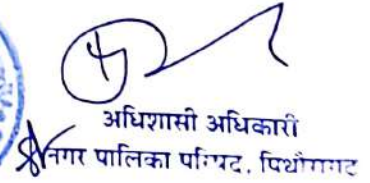 अधिशासी अधिकारी
नगर पालिका परिषद, पिथौरागढ़